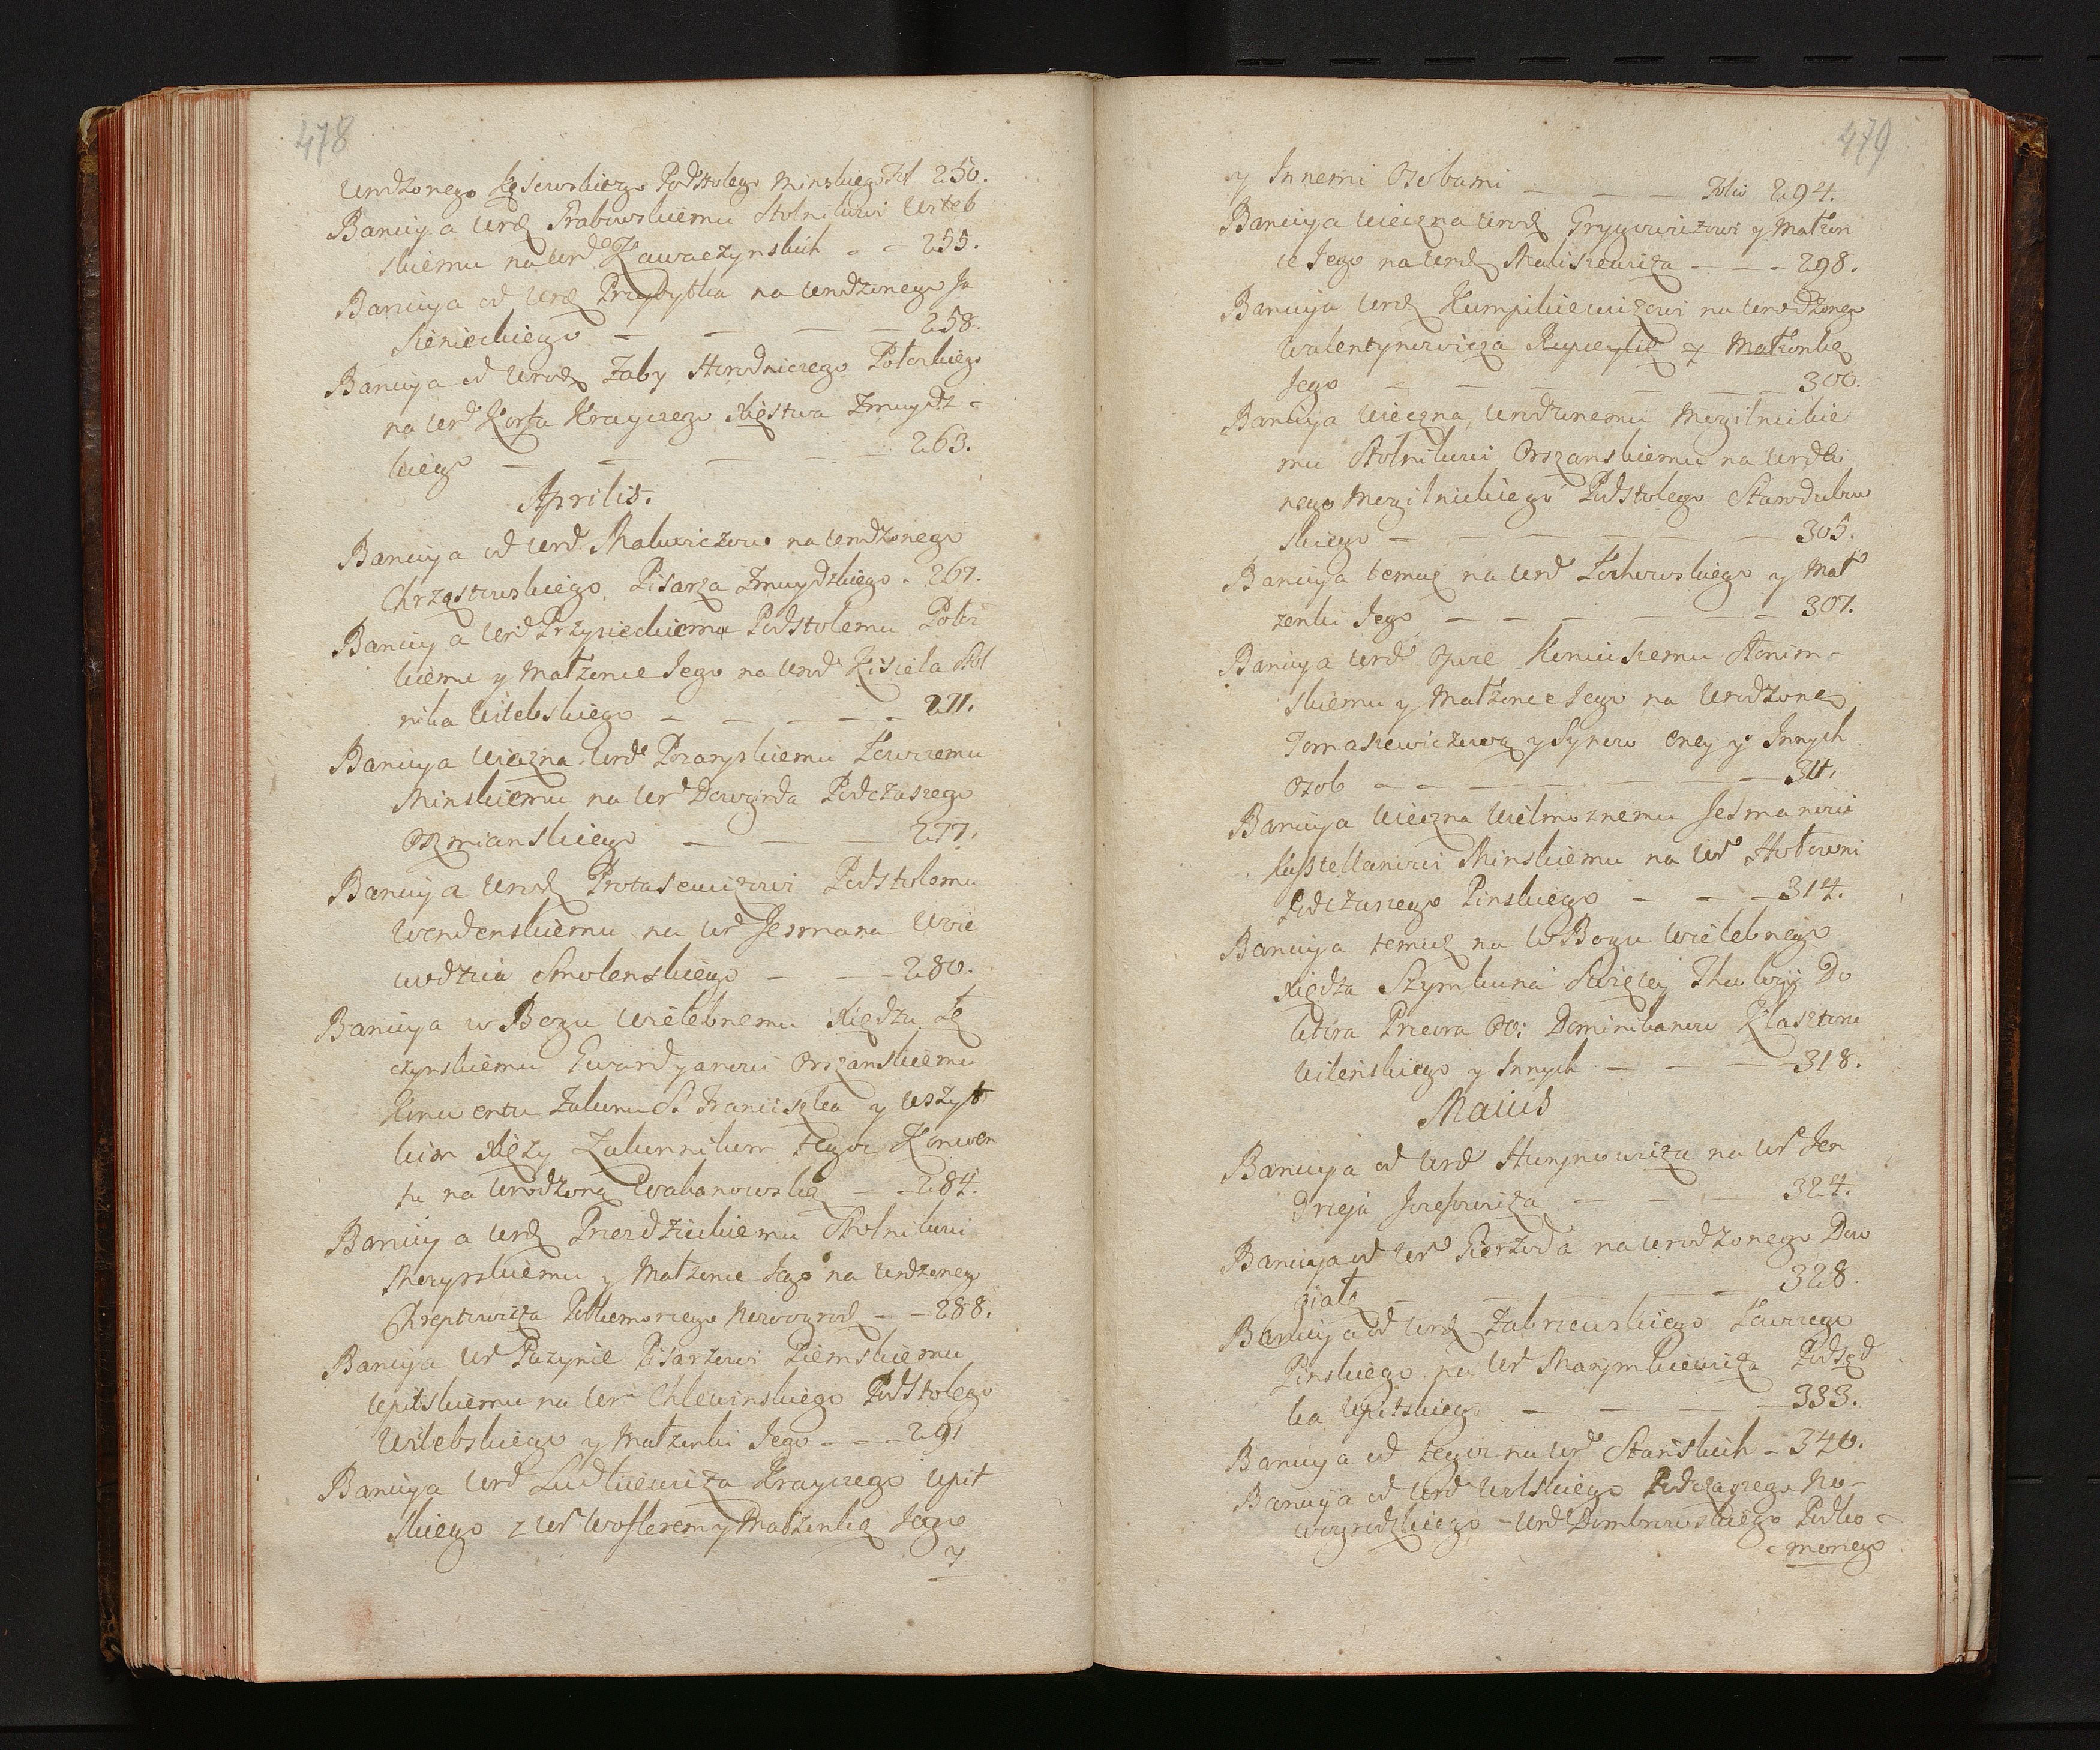 478
Urodzonego Kęsowskiego Podstolego Minskiego Fol 250.
Banicya Urod Prabowskiemu Stolnikowi Viteb
skiemu na Urd Zawaczynskich - - 255.
Banicya od Urod Przybytka na Urodzonego Ja
sienieckiego - - - - 258.
Banicya od Urodz Zaby Horodniczego Połockiego
na Ur Korfa Krayczego Xięstwa Zmuydz-
kiego - - - - 263.
Aprilis.
Banicya od Urd Malwiczowo na Urodzonego
Chrząstowskiego, Pisarza Zmuydzkiego - 267.
Banicya Urd Przysieckiemu Podstolemu Połoc
kiemu y Małżonce Jego na Urod Kisiela Stol
nika Vitebskiego - - - - - 271.
Banicya Wieczna Urd Pozaryskiemu Łowczemu
Minskiemu na Ur Dowgirda Podczaszego
Oszmianskiego - - - 277.
Banicya Urodz Protasewiczowi Podstolemu
Wendenskiemu na Ur Jesmana Woie
wodzica Smolenskiego - - - 280.
Banicya w Bogu Wielebnemu Xiędzu Łę
czynskiemu Gwardyanowi Orszanskiemu
Konwentu Zakonu S. Franciszka y Wszyt
kim Xięzy Zakonnikom tegoz Konwen
tu na Urodzoną Wabanowską - - 284.
Banicya Urodz Przezdzieckiemu Stolnikowi
Mozyrskiemu y Małzonce Jego na Urdzonego
Chreptowicza Podkomorzego Nowogrod - - 288.
Banicya Ur Puzynie Pisarzowi Ziemskiemu
Upitskiemu na Ur Chlewinskiego Podstolego
Witebskiego y Małzonki Jego - - - 291
Banicya Urd Ludkiewicza Krayczego Upit
skiego z Ur Woflerem y Małzonką Jego
y
479
y Innemi Osobami - - - Folio 294.
Banicya Wieczna Urodz Grygowiczowi y Małzon
ce Jego na Urodz Maciszewicza - - - 298.
Banicya Urodz Kumpikiewiczowi na Urodzonego
Walentynowicza y Małzonką
Jego - - - - - 300.
Banicya Wieczna, Urodzonemu Mogilnickie
mu Stolnikowi Orszanskiemu na Urodzo
nego Mogilnickiego Podstolego Starodubow
skiego - - - - - - 305.
Banicya temuz na Urd Zochowskiego y Małż
zonki Jego - - - - - - 307.
Banicya Urd Ożare Koniuszemu Słonim-
skiemu y Małzonce Jego na Urodzoną
Tomaszewiczową y Synow oney y Innych
Osob - - - - - - 311.
Banicya Wieczna Wielmoznemu Jesmanowi
Kasztellanowi Minskiemu na Ur Hołowni
Podczaszego Pinskiego - - - 314.
Banicya temuz na W Bogu Wielebnego
Xiędza Szymkuna Swiętey Theologij Do
ktora Przeora OO: Dominikanow Klasztoru
Wilenskiego y Innych - - - 318.
Maius
Banicya od Urd Hurynowicza na Ur Jen
drzeja Jozefowicza - - - 324.
Banicya od Ur Gierzoda na Urodzonego Dow
giałę - - - - 328.
Banicya od Urd Zabrzewskiego Łowczego
Pinskiego na Ur Marymkiewicza Podsęd
ka Upitskiego - - - - 333.
Banicya od tegoz na Urd Stanskich - 340.
Banicya od Urd Wolskiego Podczaszego No-
wogrodzkiego - Urd Dombrowskiego Podko-
morzego